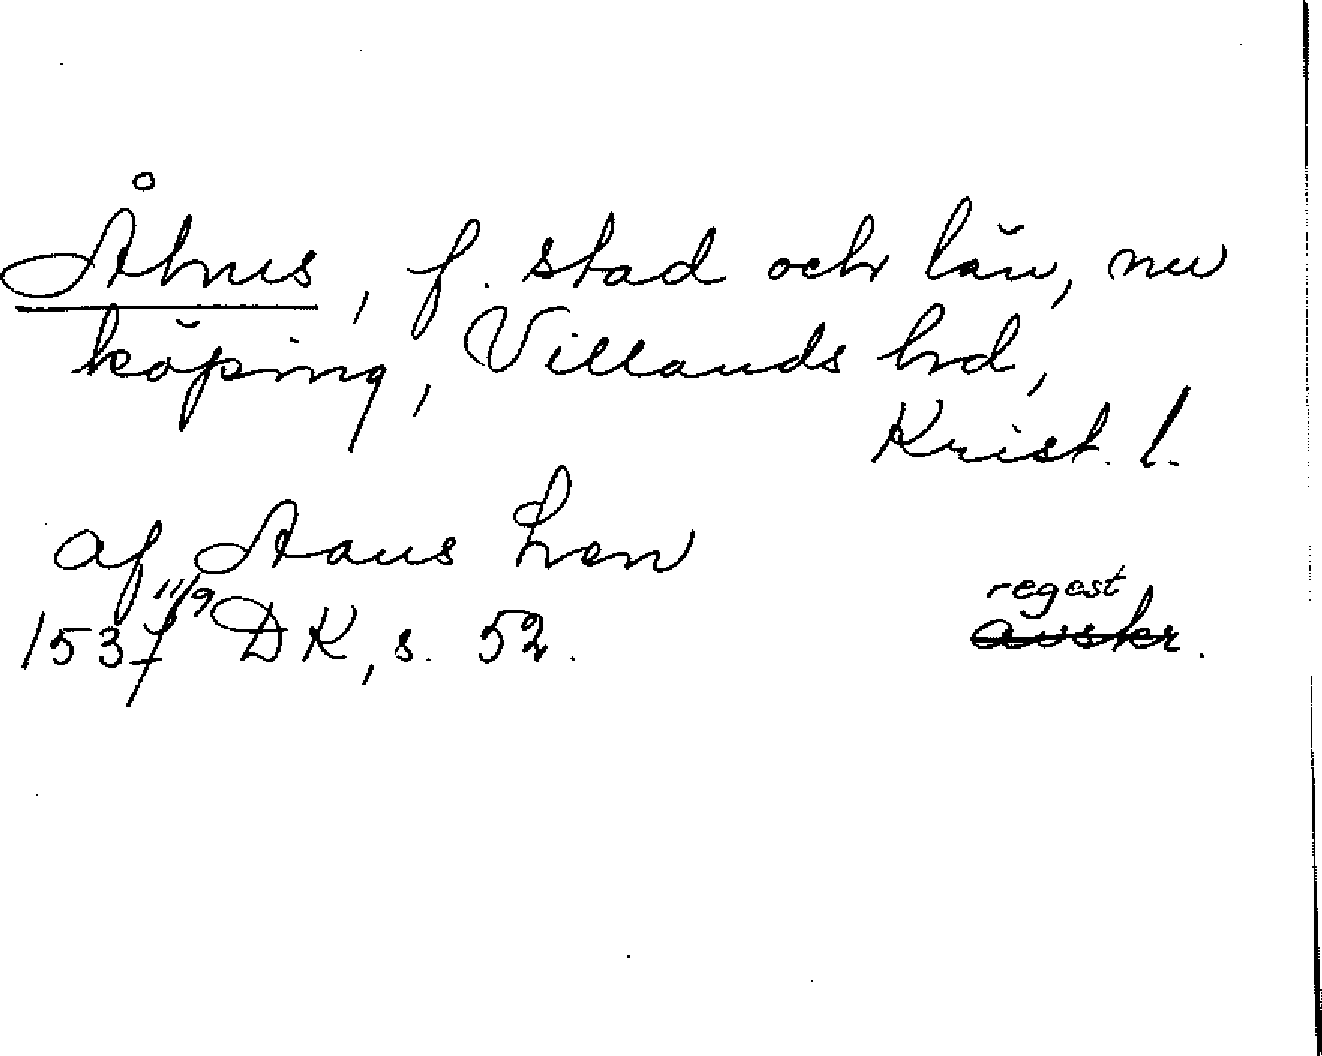 Åhus, f. stad och län, nu
köping, Villands hd,
Krist. l.
af Aaus Len
1537 11/9 DK, s. 52.
regest
avskr.